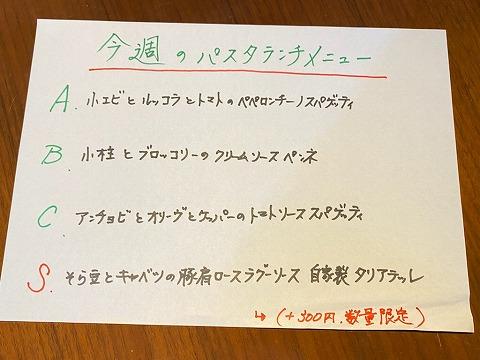 今週のパスタランチメニュー
A. 小エビとルッコラとトマトのペペロンチーノスパゲッティ
B. 小柱とブロッコリーのクリームソースペンネ
C. アンチョビとオリーヴとケッパーのトマトソーススパゲッティ
S. そら豆とキャベツの豚肩ロースラグーソース 自家製タリアテッレ
↳ (+300円.数量限定)